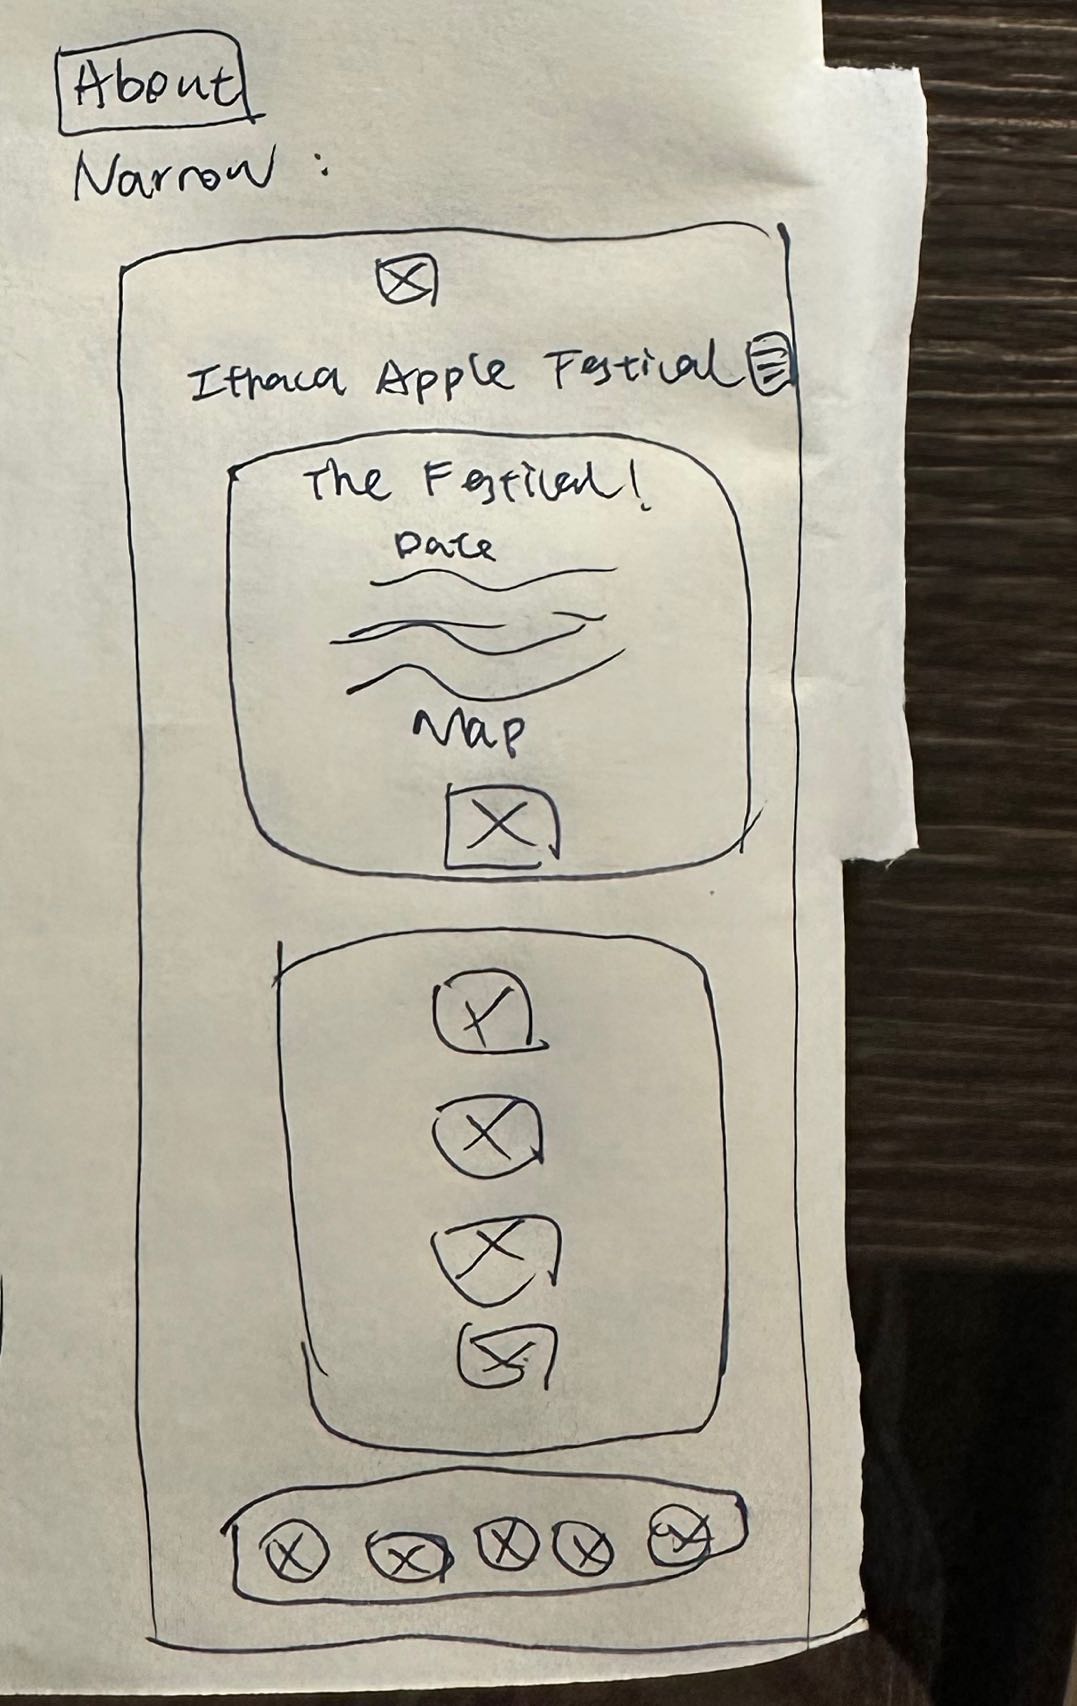 About
Narrow :
Ithaca Apple Festival
The Festival!
Date
Map